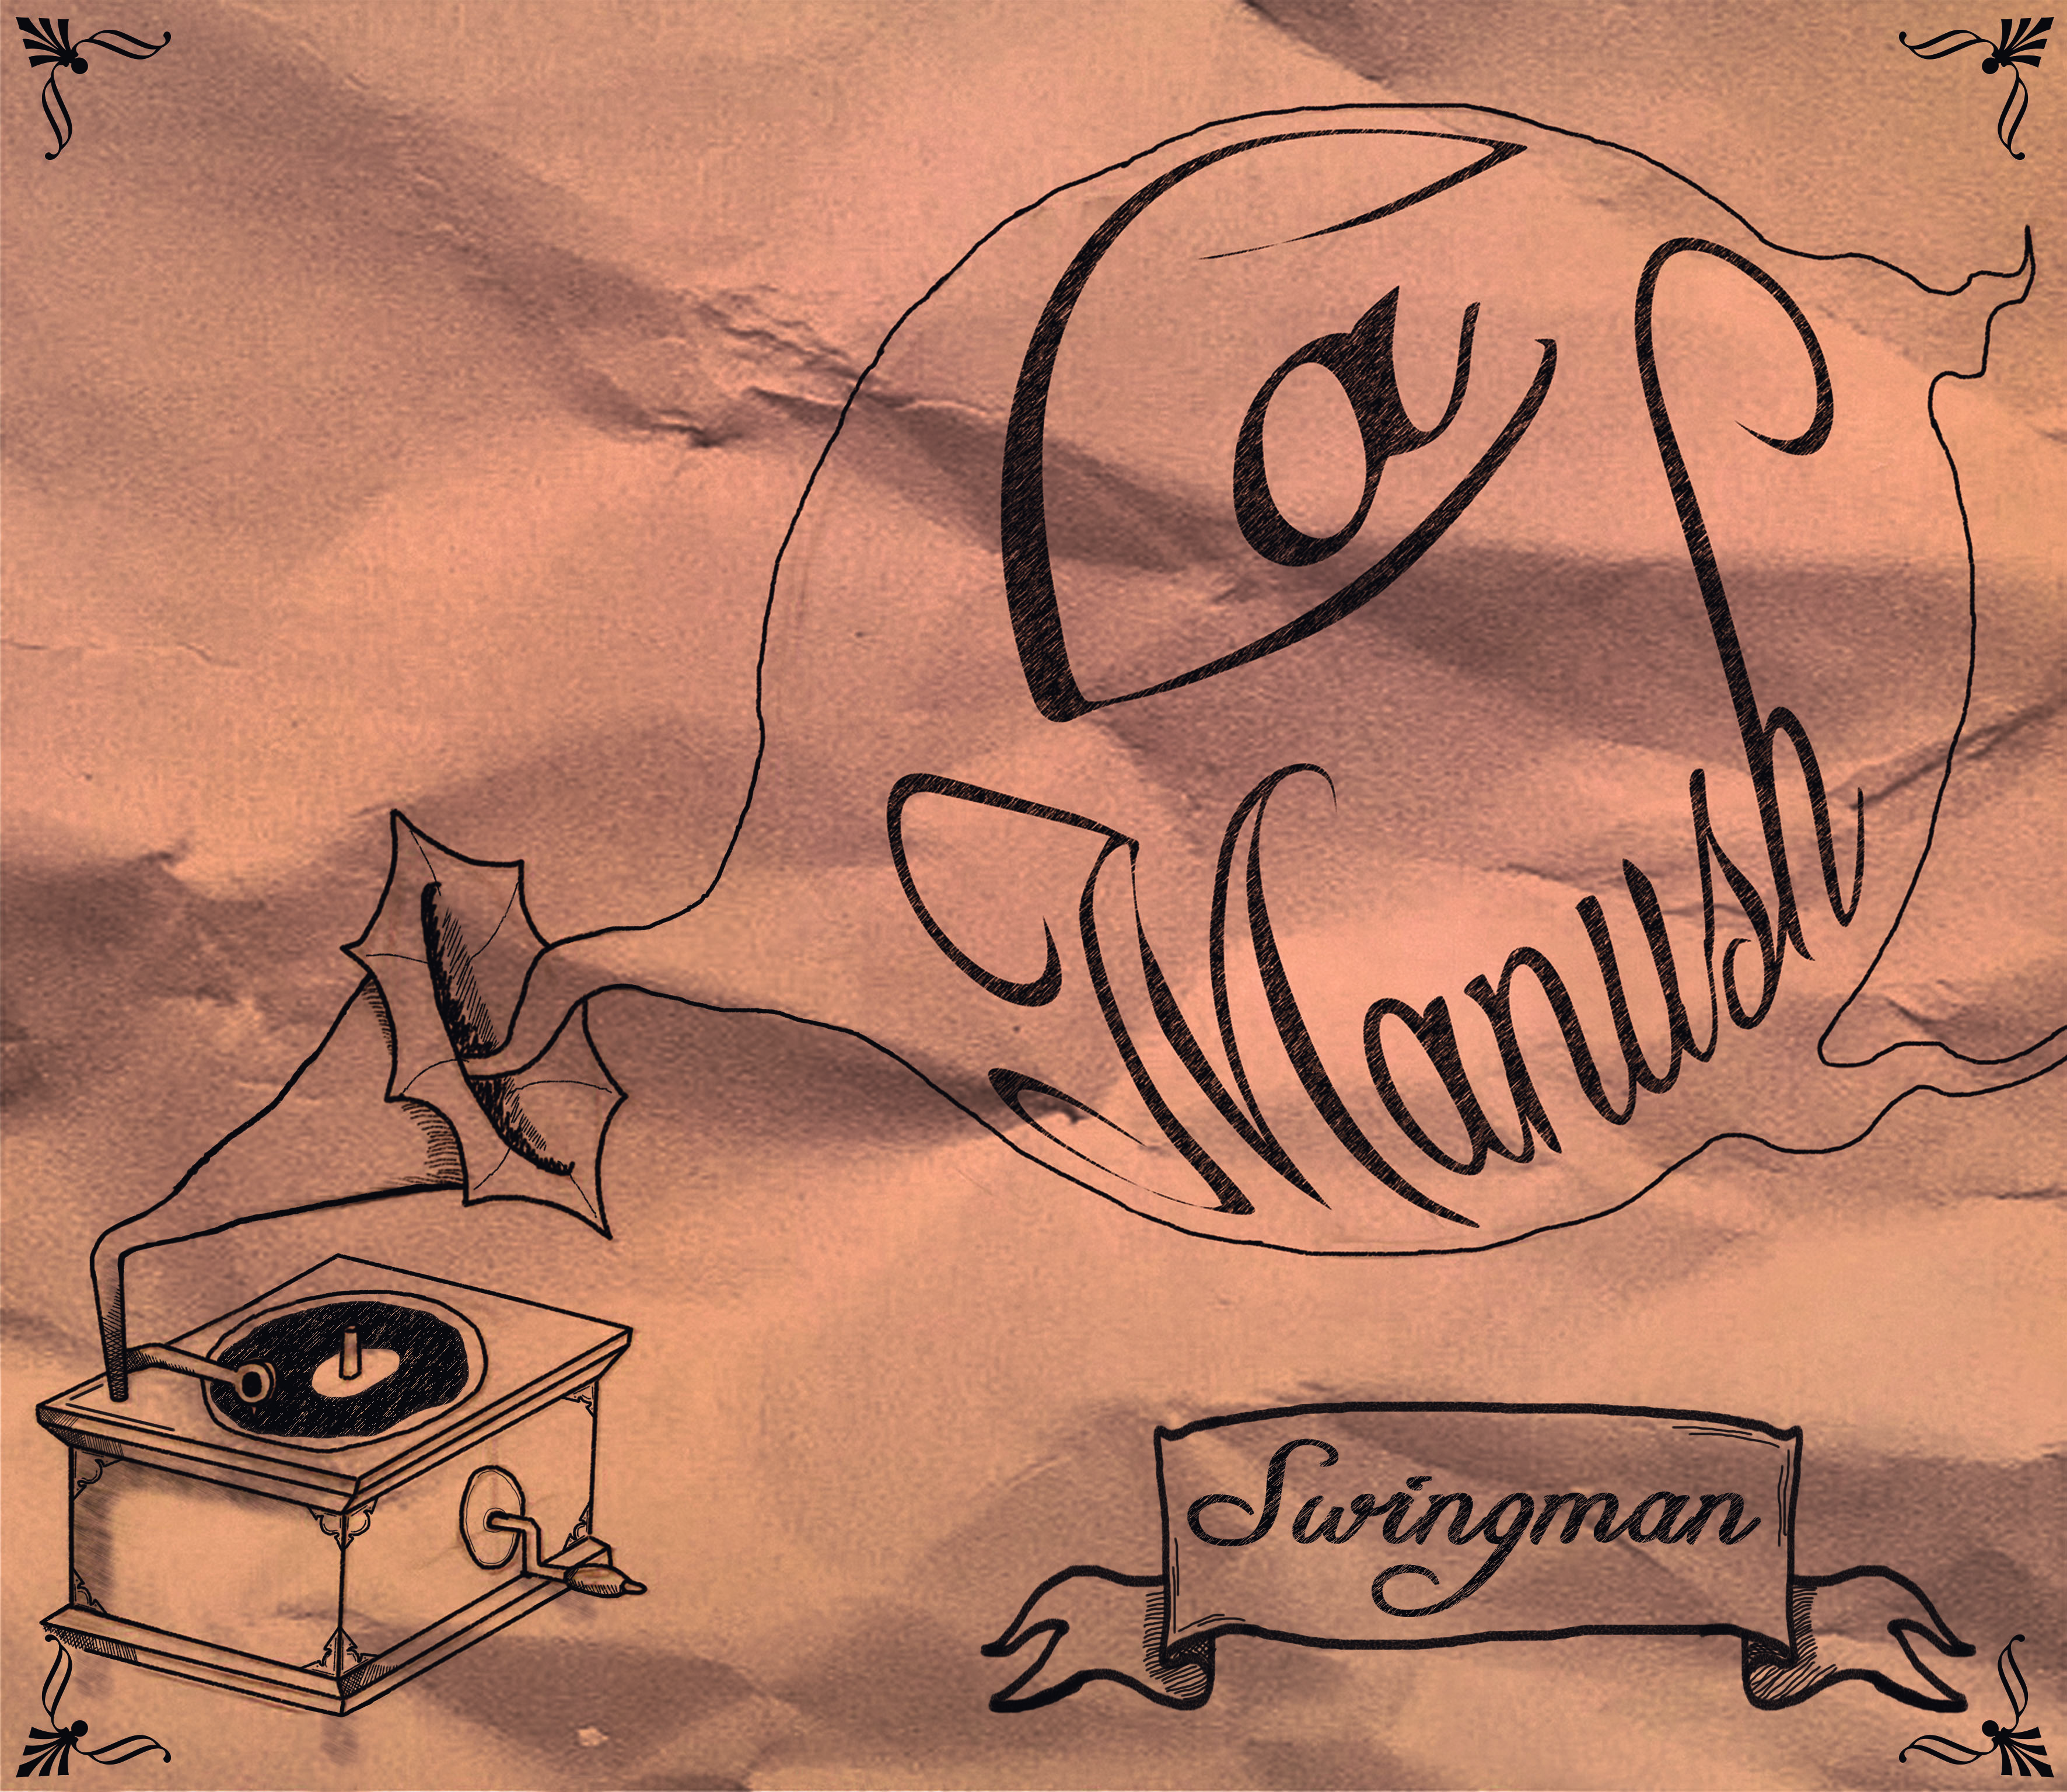 La
Manush
Swingman